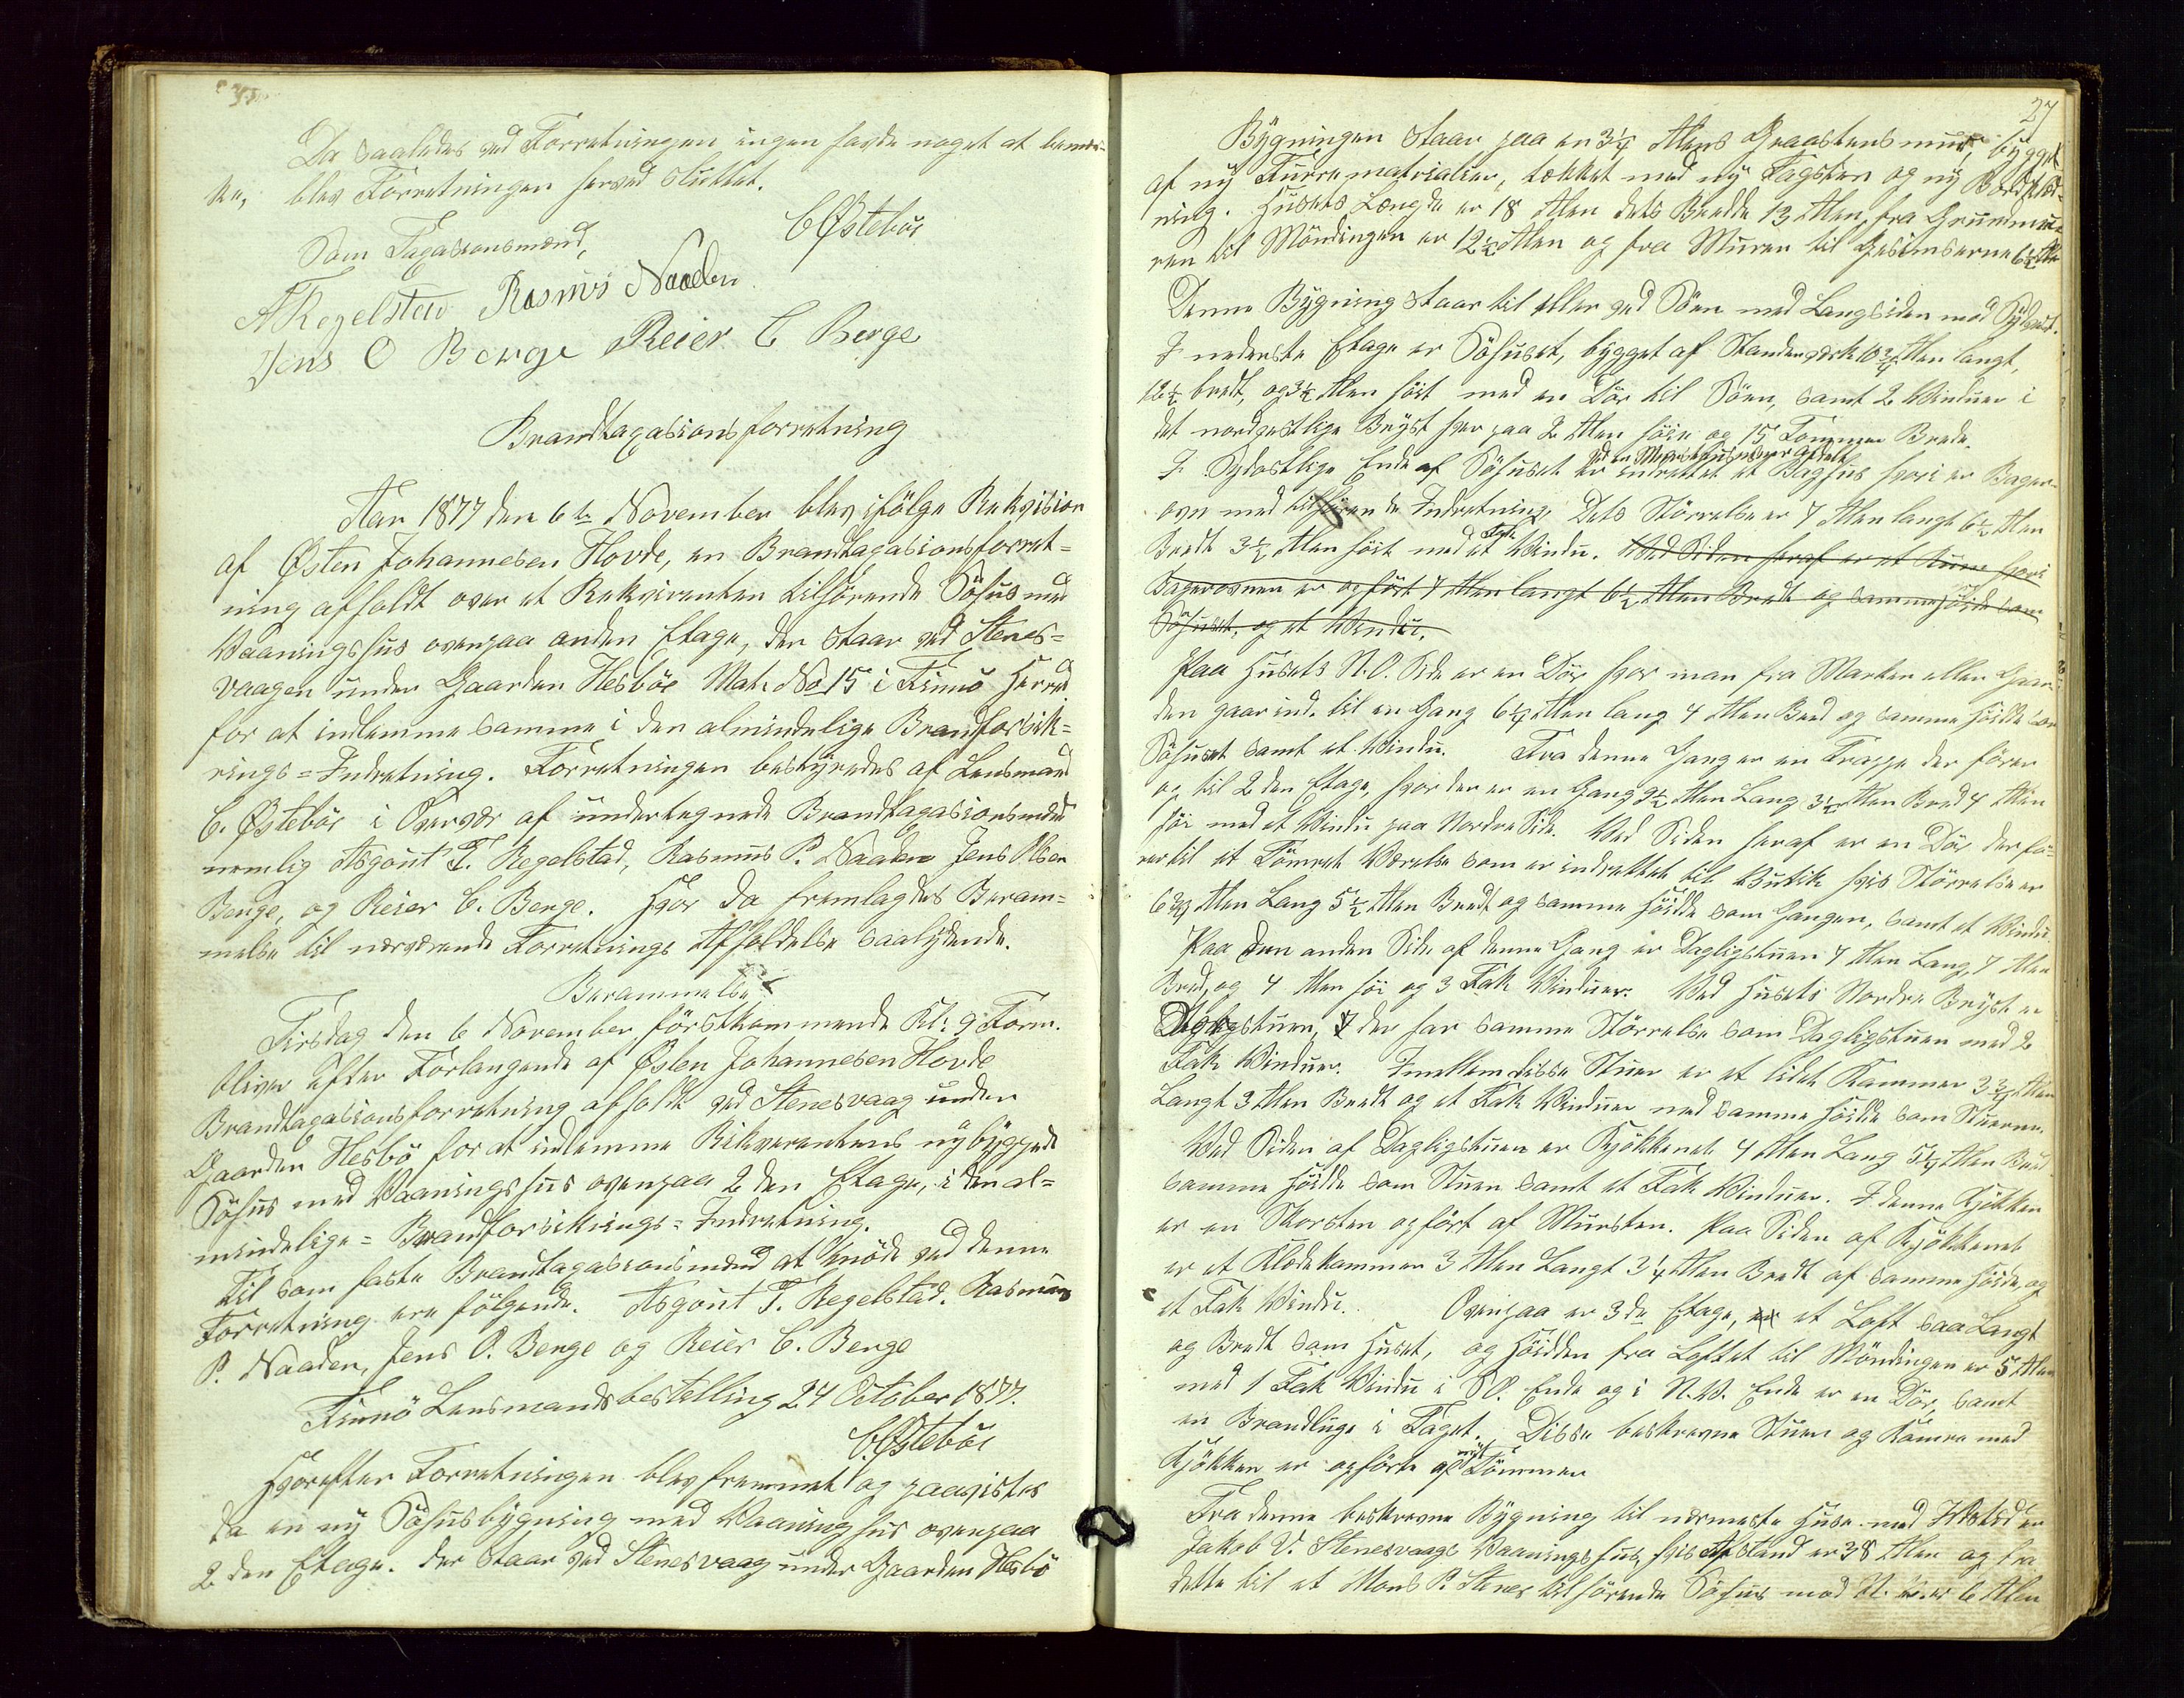 Da saaledes ved Forretningen ingen havde noget at bemær-
ke, blev Forretningen herved sluttet.
C Østebøe
Som Taxasionsmænd,
A Regelstad Rasmus Naaden
Jens O Berge Reier C Berge
Brandtaxasionsforretning
Aar 1877 den 6te November blev ifölge Rekvisision
af Østen Johannesen Hovde, en Brandtaxasionsforret=
ning afholdt over et Rekvirenten tilhörende Söhus med
Vaaningshus ovenpaa anden Etage, der staar ved Stenes=
vaagen under Gaarden Hesbøe Matr No 15 i Finnö Herred
for at indlemme samme i den almindelige Brandforsik=
rings=Indretning. Forretningen bestyredes af Lensmand
C. Østebøe i Overvær af undertegnede Brandtaxasionsmænd
nemlig Asgout T. Regelstad, Rasmus P. Naaden Jens Olsen
Berge, og Reier C. Berge. Hvor da fremlagdes Beram=
melse til nærværende Forretnings Afholdelse saalydende.
Berammelse
Tirsdag den 6 November förstkommende Kl: 9 Form.
bliver efter Forlangende af Østen Johannesen Hovde
Brandtaxasionsforretning afholdt ved Stenesvaag under
Gaarden Hesbö for at indlemme Rikverentens nybyggede
Söhus med Vaaningshus ovenpaa 2den Etage, i den al=
mindelige=Brandforsikrings=Indretning.
Til som faste Brandtaxasionsmænd at möde ved denne
Forretning ere fölgende. Asgout T. Regelstad. Rasmus
P. Naaden, Jens O. Berge og Reier C. Berge
Finnö Lensmandsbestilling 24 October 1877.
C. Østebøe
Hvorefter Forretningen blev fremmet og paavistes
da en ny Söhusbygning med Vaaningshus ovenpaa
2den Etage. der staar ved Stenesvaag under Gaarden Hesbö
27
Bygningen staar paa en 3¼ Alens Graastensmur, bygget
af ny Furrematrialier, tækket med ny Tagsten og ny Bordklæd-
ning. Husets Længde er 18 Alen dets Bredde 13 Alen, fra Grundmu-
ren til Möndingen er 12½ Alen og fra Muren til Gesimserne 6½ Al
Denne Bygning staar til eller ved Söen med Langsiden mod Sydvest.
I nederste Etage er Söhuset, bygget af Standerværk 10¾ Alen langt,
12½ bredt, og 3½ Alen höit med en Dör til Söen, samt 2 Vinduer i
det nordvestlige Bryst hver paa 2 Alen höie og 15 Tommer Brede.
I Sydostlige Ende af Söhuset er indrettet et Baghus hvori er Bager-
ovn med tilhörende Indretning Dets Störrelse er 7 Alen langt 6½ Alen
Bredt 3½ Alen höit med et Fak Vindu. Ved Siden heraf er et Rum hvori
Bagerovnen er opfört 7 Alen langt 6½ Alen Bredt og samme höide som
Söhuset, og et Vindu.
Paa Husets N.O. Side er en Dör hvor man fra Marken eller Gaar-
den gaar ind, til en Gang 6¼ Alen lang 4 Alen Bred og samme höide som
Söhuset samt et Vindu. Fra denne Gang er en Trappe der förer
op til 2den Etage, hvor der er en Gang 9½ Alen Lang 3½ Alen Bred 4 Alen
höi med et Vindu paa Nordre Side. Ved Siden heraf er en Dör der fö-
rer til et Tömret Værelse som er indrettet til Butik hvis Störrelse er
6¾ Alen Lang 5½ Alen Bredt og samme höide som Gangen, samt et Vindu.
Paa den anden Side af denne Gang er Dagligstuen 7 Alen Lang, 7 Alen
Bred, og 4 Alen höi og 3 Fak Vinduer. Ved Husets Nordre Bryst er
stuen, der har samme Störrelse som Dagligstuen med 2
Fak Vinduer. Imellem disse Stuer er et lidet Kammer 3¾ Alen
Langt 3 Alen Bredt og et Fak Vinduer med samme höide som Stuerne.
Ved Siden af Dagligstuen er Kjökkenet 7 Alen Lang 5¼ Alen Bred
samme höide som Stuen samt et Fak Vinduer. I denne Kjökken
er en Skorsten opfört af Mursten. Paa Siden af Kjökkenet
er et Klædekammer 3 Alen Langt 3¼ Alen Bredt af samme höide, og
et Fak Vindu. Ovenpaa er 3de Etage, et Loft saa Langt
og Bredt som Huset, og höiden fra Loftet til Möndingen er 5 Alen
med 1 Fak Vindu i S.O. Ende og i N.V. Ende er en Dör, samt
en Brandluge i Taget. Disse beskrevne Stuer og Kamre med
Kjökken er opförte af nyt Tömmer
Fra denne beskrevne Bygning til nærmeste Huse med Ildsted er
Jakob V. Stenesvaags Vaaningshus, hvis Afstand er 38 Alen og fra
dette til et Mons P. Stenes tilhörende Söhus mod N. er 6 Alen